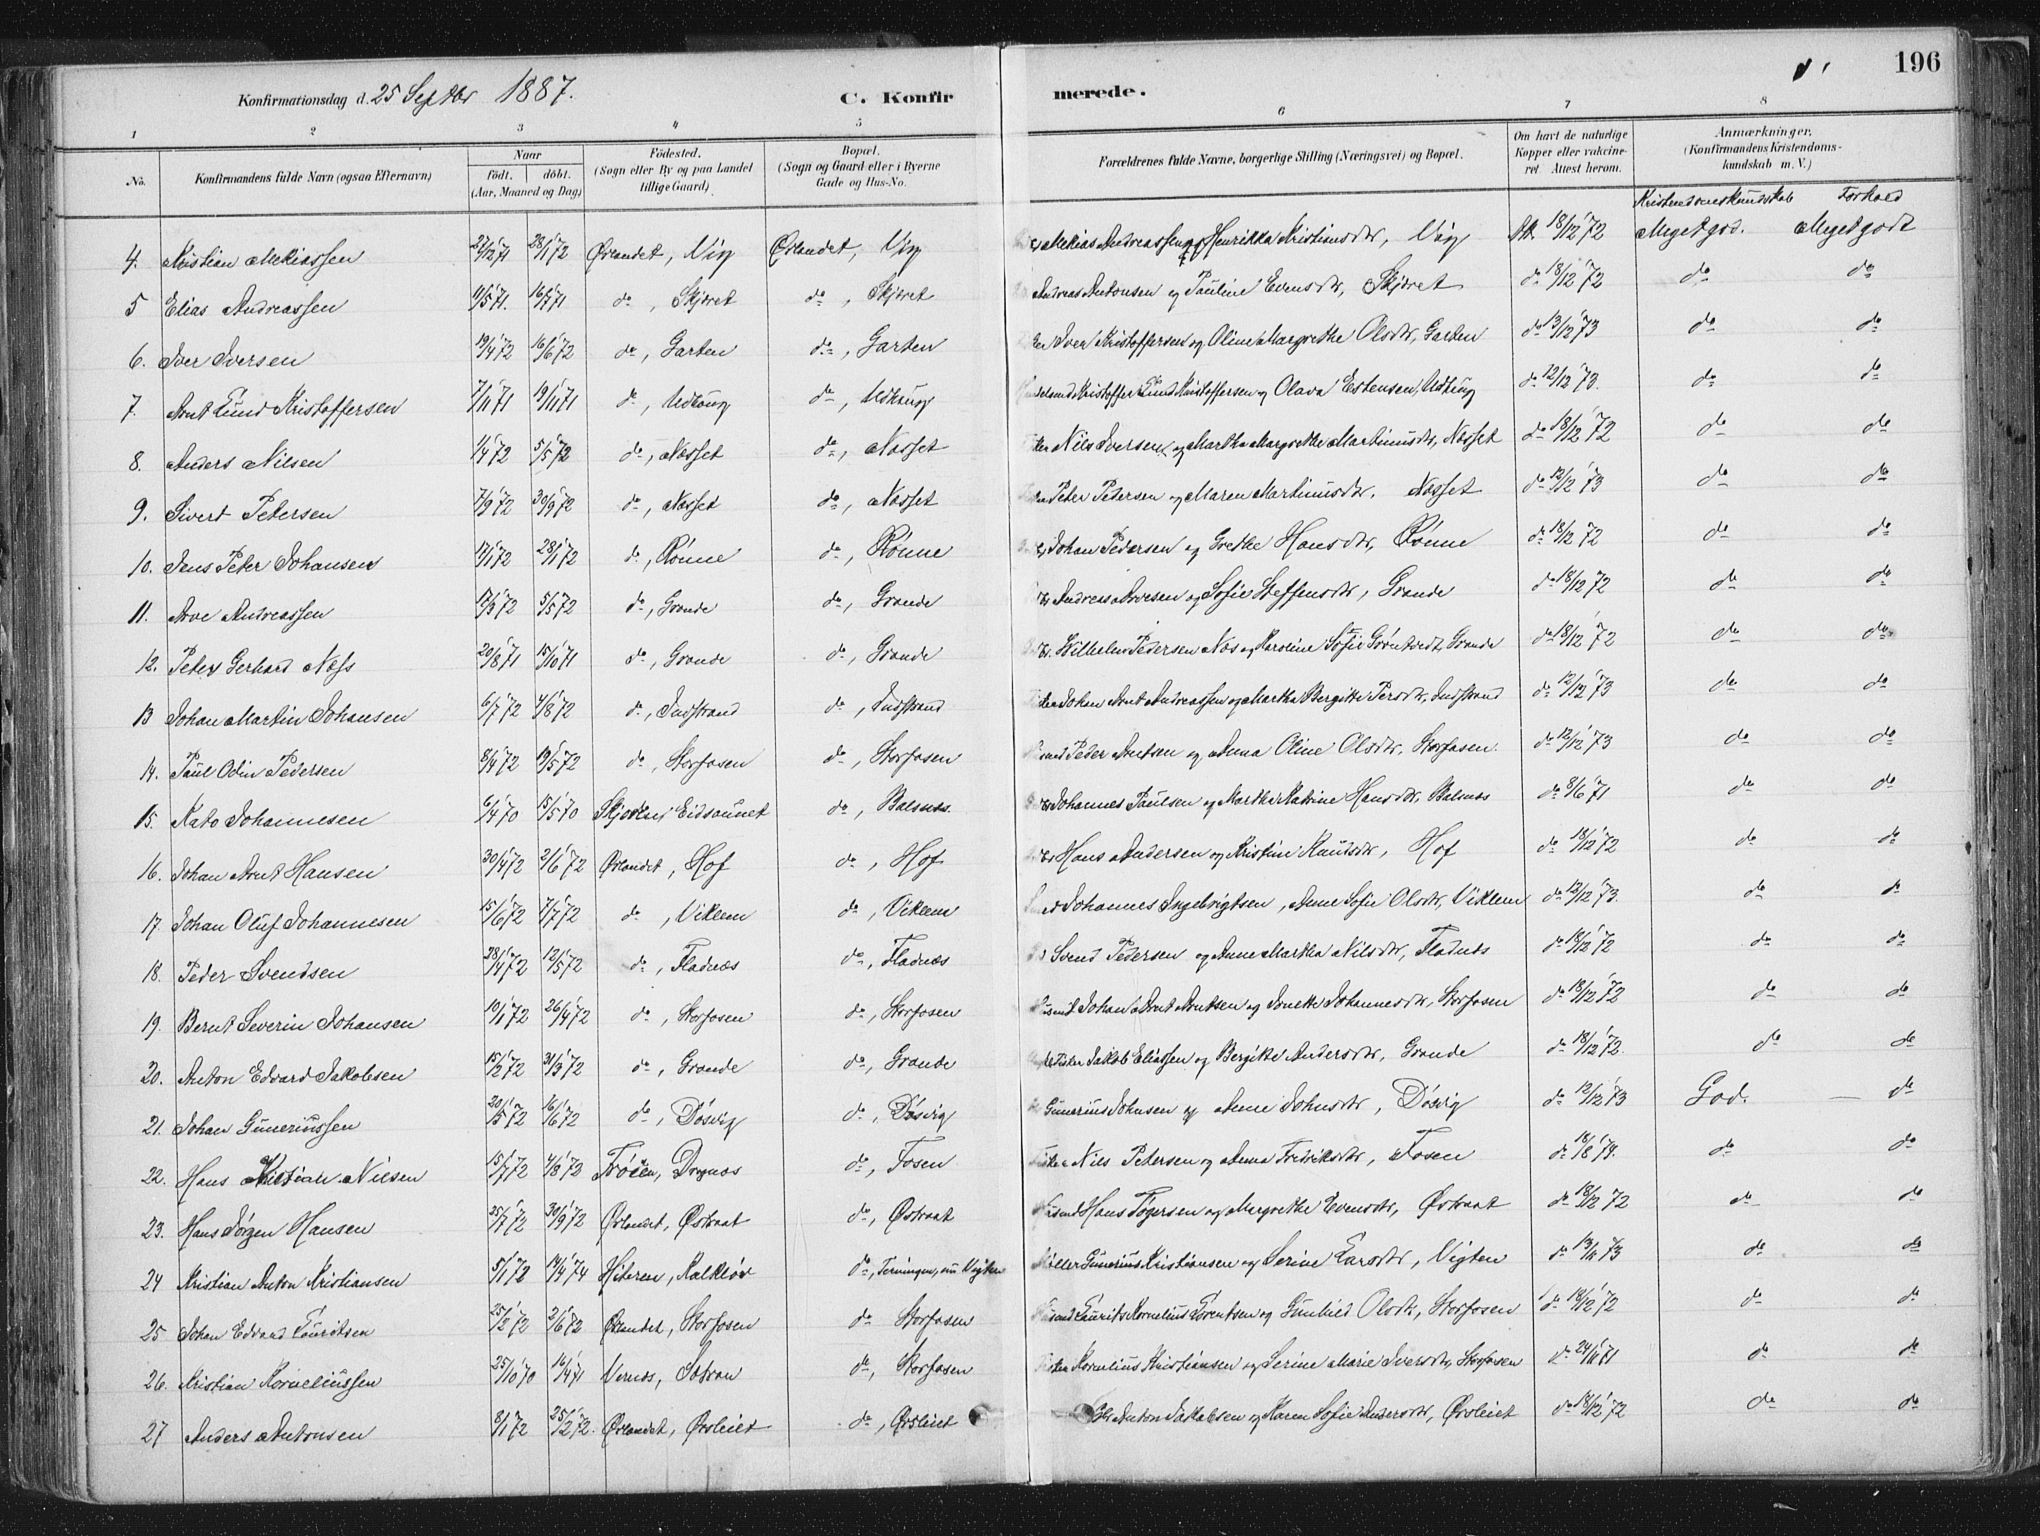 196
Konfirmationsdag d. 25 Septbr 1887. C. Konfirmerede.
1 2 3 4 5 6 7 8
No. Konfirmandens fulde Navn (ogsaa Efternavn) Naar født. døbt. (Aar, Maaned og Dag) Fødested. (Sogn eller By og paa Landet tillige Gaard) Bopæl. (Sogn og Gaard eller i Byerne Gade og Hus-No. Forældrenes fulde Navne, borgerlige Stilling (Næringsvei) og Bopæl. Om havt de naturlige Kopper eller vakcineret. Attest herom. Anmærkninger. (Konfirmandens Kristendomskundskab m. V.)
Kristendomskundskab Forhold
4. Kristian Mekiassen 27/12 71 28/1 72 Ørlandet, Vig Ørlandet, Vig Mekias Andreassen og Henrikka Kristiansdtr, Viig Att. 18/12 72 Meget god. Meget godt
5 Elias Andreassen 11/5 71. 16/7 71 do, Skjøret do, Skjøret Andreas Antonsen og Pauline Evensdtr, Skjøret do 18/12 72 do do
6. Iver Iversen 19/4 72 16/6 72 do, Garten do, Garten Iver Kristoffersen og Oline Margrethe Olsdtr, Garten do 13/12 73 do do
7. Arnt Lund Kristoffersen 7/11 71 19/11 71 do, Udhaug do, Udhaug Kristoffer Lund Kristoffersen og Olava Estensen, Udhaug do 12/12 73. do do
8. Anders Nilsen 1/4 72 5/5 72 do, Næsset do, Næsset Nils Iversen og Martha Margrethe Martinusdtr, Næsset do 18/12 72 do do
9. Sivert Petersen 7/9 72 30/9 72 do, Næsset do, Næsset Peter Petersen og Maren Martinusdtr. Næsset do 12/12 73 do do
10. Jens Peter Johansen 17/1 72 28/1 72 do, Rønne do, Rønne Johan Pedersen og Grethe Hansdtr, Rønne do 18/12 72 do do
11. Arve Andreassen 17/3 72 5/5 72 do, Grande do, Grande Andreas Arvesen og Sofie Steffensdtr, Grande do 18/12 72 do do
12. Peter Gerhard Næss 20/8 71 15/10 71 do, Grande do, Grande Vilhelm Pedersen Næs og Karoline Sofie Grøntvedt, Grande do 18/12 72 do do
13 Johan Martin Johansen 6/7 72 4/8 72 do, Indstrand do, Indstrand Johan Arnt Andreassen og Martha Bergitte Persdtr, Indstrand do 12/12 73 do do
14. Paul Odin Pedersen 8/4 72 19/5 72 do, Storfosen do, Storfosen Peder Arntsen og Anna Oline Olsdtr, Storfosen. do 12/12 73 do do
15. Kato Johannesen 6/4 70 15/5 70 Skjørn, Eidsaunet do, Balsnæs Johannes Paulsen og Martha Katrine Hansdtr, Balsnæs do 8/6 71 do do
16. Johan Arnt Hansen 30/4 72 2/6 72 Ørlandet, Hof do, Hof Hans Andersen og Kristine Knudsdtr, Hof do 18/12 72 do do
17. Johan Oluf Johannesen 15/6 72 7/7 72 do, Viklem do, Viklem Johannes Ingebrigtsen, Anne Sofie Olsdtr, Viklem do 12/12 73. do do
18. Peder Svendsen 28/4 72 12/5 72 do, Fladnæs do, Fladnæs Svend Pedersen og Anne Martha Nilsdtr, Fladnæs do 18/12 72 do do
19. Bernt Severin Johansen 10/1 72 26/4 72 do, Storfosen do, Storfosen Johan Arnt Arntsen og Jonette Johannesdtr, Storfosen do 18/12 72 do do
20. Anton Edvard Jakobsen 15/2 72 31/3 72 do, Grande do, Grande Jakob Eliassen og Bergitte Andersdtr, Grande do 18/12 72. do do
21. Johan Gunerius​sen 20/5 72 16/6 72 do, Døsvig do, Døsvig Gunerius Johnsen og Anne Johnsdtr, Døsvig do 12/12 73 God. do
22. Hans Kristian Nilsen 15/7 72 4/8 72 do, Fosen Nils Petersen og Anna Fredriksdtr, Fosen do do do
23. Hans Jørgen Hansen 25/7 72 30/9 72 Ørlandet, Østraat do, Østraat Hans Tøgersen og Margrethe Evensdtr, Østraat do 18/12 72 do do
24 Kristian Anton Kristiansen 5/1 72 Hiteren, do, Terningen, nu Vigten Møller Gunerius Kristiansen og Serine Larsdtr, Vigten do do do
25 Johan Edvard Lauritsen 25/2 72 2/6 72 Ørlandet, Storfosen do Storfosen Laurits Kornelius Lorentsen og Gunhild Olsdtr, Storfosen do 18/12 72 do do
26. Kristian Korneliussen 25/10 70 16/4 71 do, Storfosen Kornelius Kristiansen og Serine Marie Iversdtr, Storfosen do 24/11 71 do do
27 Anders Antonsen 8/1 72 25/2 72. Ørlandet, Ørsleiet do, Ørsleiet Anton Jakobsen og Karen Sofie Andersdtr, Ørsleiet do 18/12 72 do do